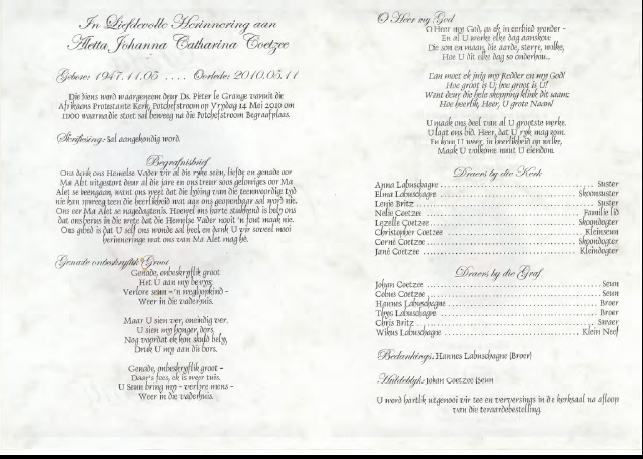 In Liefdevolle Herinnering aan
Aletta Johanna Catharina Coetzee
Gebore: 1947.11.05 .... Oorlede: 2010.05.11
Die diens word waargeneem deur Ds. Peter le Grange vanuit die
Afrikaans Protestante Kerk, Potchefstroom op Vrydag 14 Mei 2010 om
1100 waarna die stoet sal beweeg na die Potchefstroom Begraafplaas.
Skriflesing: Sal aangekondig word.
Begrafnisbrief
Ons dank ons Hemelse Vader vir al die ryke seën, liefde en genade oor
Ma Alet uitgestort deur al die jare en ons treur soos gelowiges oor Ma
Alet se heengaan, want ons weet dat die lyding van die teenwoordige tyd
nie kan opweeg teen die heerlikheid wat aan ons geopenbaar sal word nie.
Ons eer Ma Alet se nagedagtenis. Hoewel ons harte stukkend is help ons
dat ons berus in die wete dat die Hemelse Vader nooit 'n fout maak nie.
Ons gebed is dat U self ons wonde sal heel en dank U vir soveel mooi
herinneringe wat ons van Ma Alet mag hê.
Genade onbeskryflik Groot
Genade, onbeskryflik groot
Het U aan my bewys
Verlore seun - 'n wegloopkind -
Weer in die vaderhuis.
Maar U sien ver, oneindig ver,
U sien my honger, dors.
Nog voordat ek kon skuld bely,
Druk U my aan die bors.
Genade, onbeskryflik groot -
Daar's fees, ek is weer tuis.
U Seun bring my - verlore mens -
Weer in die vaderhuis.
O Heer my God
O Heer my God, as ek in eerbied wonder -
En al U werke elke dag aanskou:
Die son en maan, die aarde, sterre, wolke,
Hoe U dit elke dag so onderhou...
Dan moet ek juig my Redder en my God!
Hoe groot is U; hoe groot is U!
Want deur die hele skepping klink dit saam:
Hoe heerlik, Heer, U grote Naam!
U maak ons deel van al U grootste werke.
U laat ons bid. Heer, dat U ryk mag kom.
En kom U weer, in heerlikheid op wolke,
Maak U volkome ons U eiendom.
Draers by die Kerk
Anna Labuschagne ........ Suster
Elma Labuschagne ........ Skoonsuster
Lenie Britz ........ Suster
Nelie Coetzee ........ Familie lid
Lezelle Coetzee ........ Skoondogter
Christopher Coetzee ........ Kleinseun
Corné Coetzee ........ Skoondogter
Jané Coetzee ........ Kleindogter
Draers by die Graf
Johan Coetzee ........ Seun
Cobus Coetzee ........ Seun
Hannes Labuschagne ........ Broer
Thys Labuschagne ........ Broer
Chris Britz ........ Swaer
Wikus Labuschagne ........ Klein Neef
Bedankings: Hannes Labuschagne (Broer)
Huldeblyk: Johan Coetzee (Seun)
U word hartlik uitgenooi vir tee en verversings in die kerksaal na afloop
van die teraardebestelling.